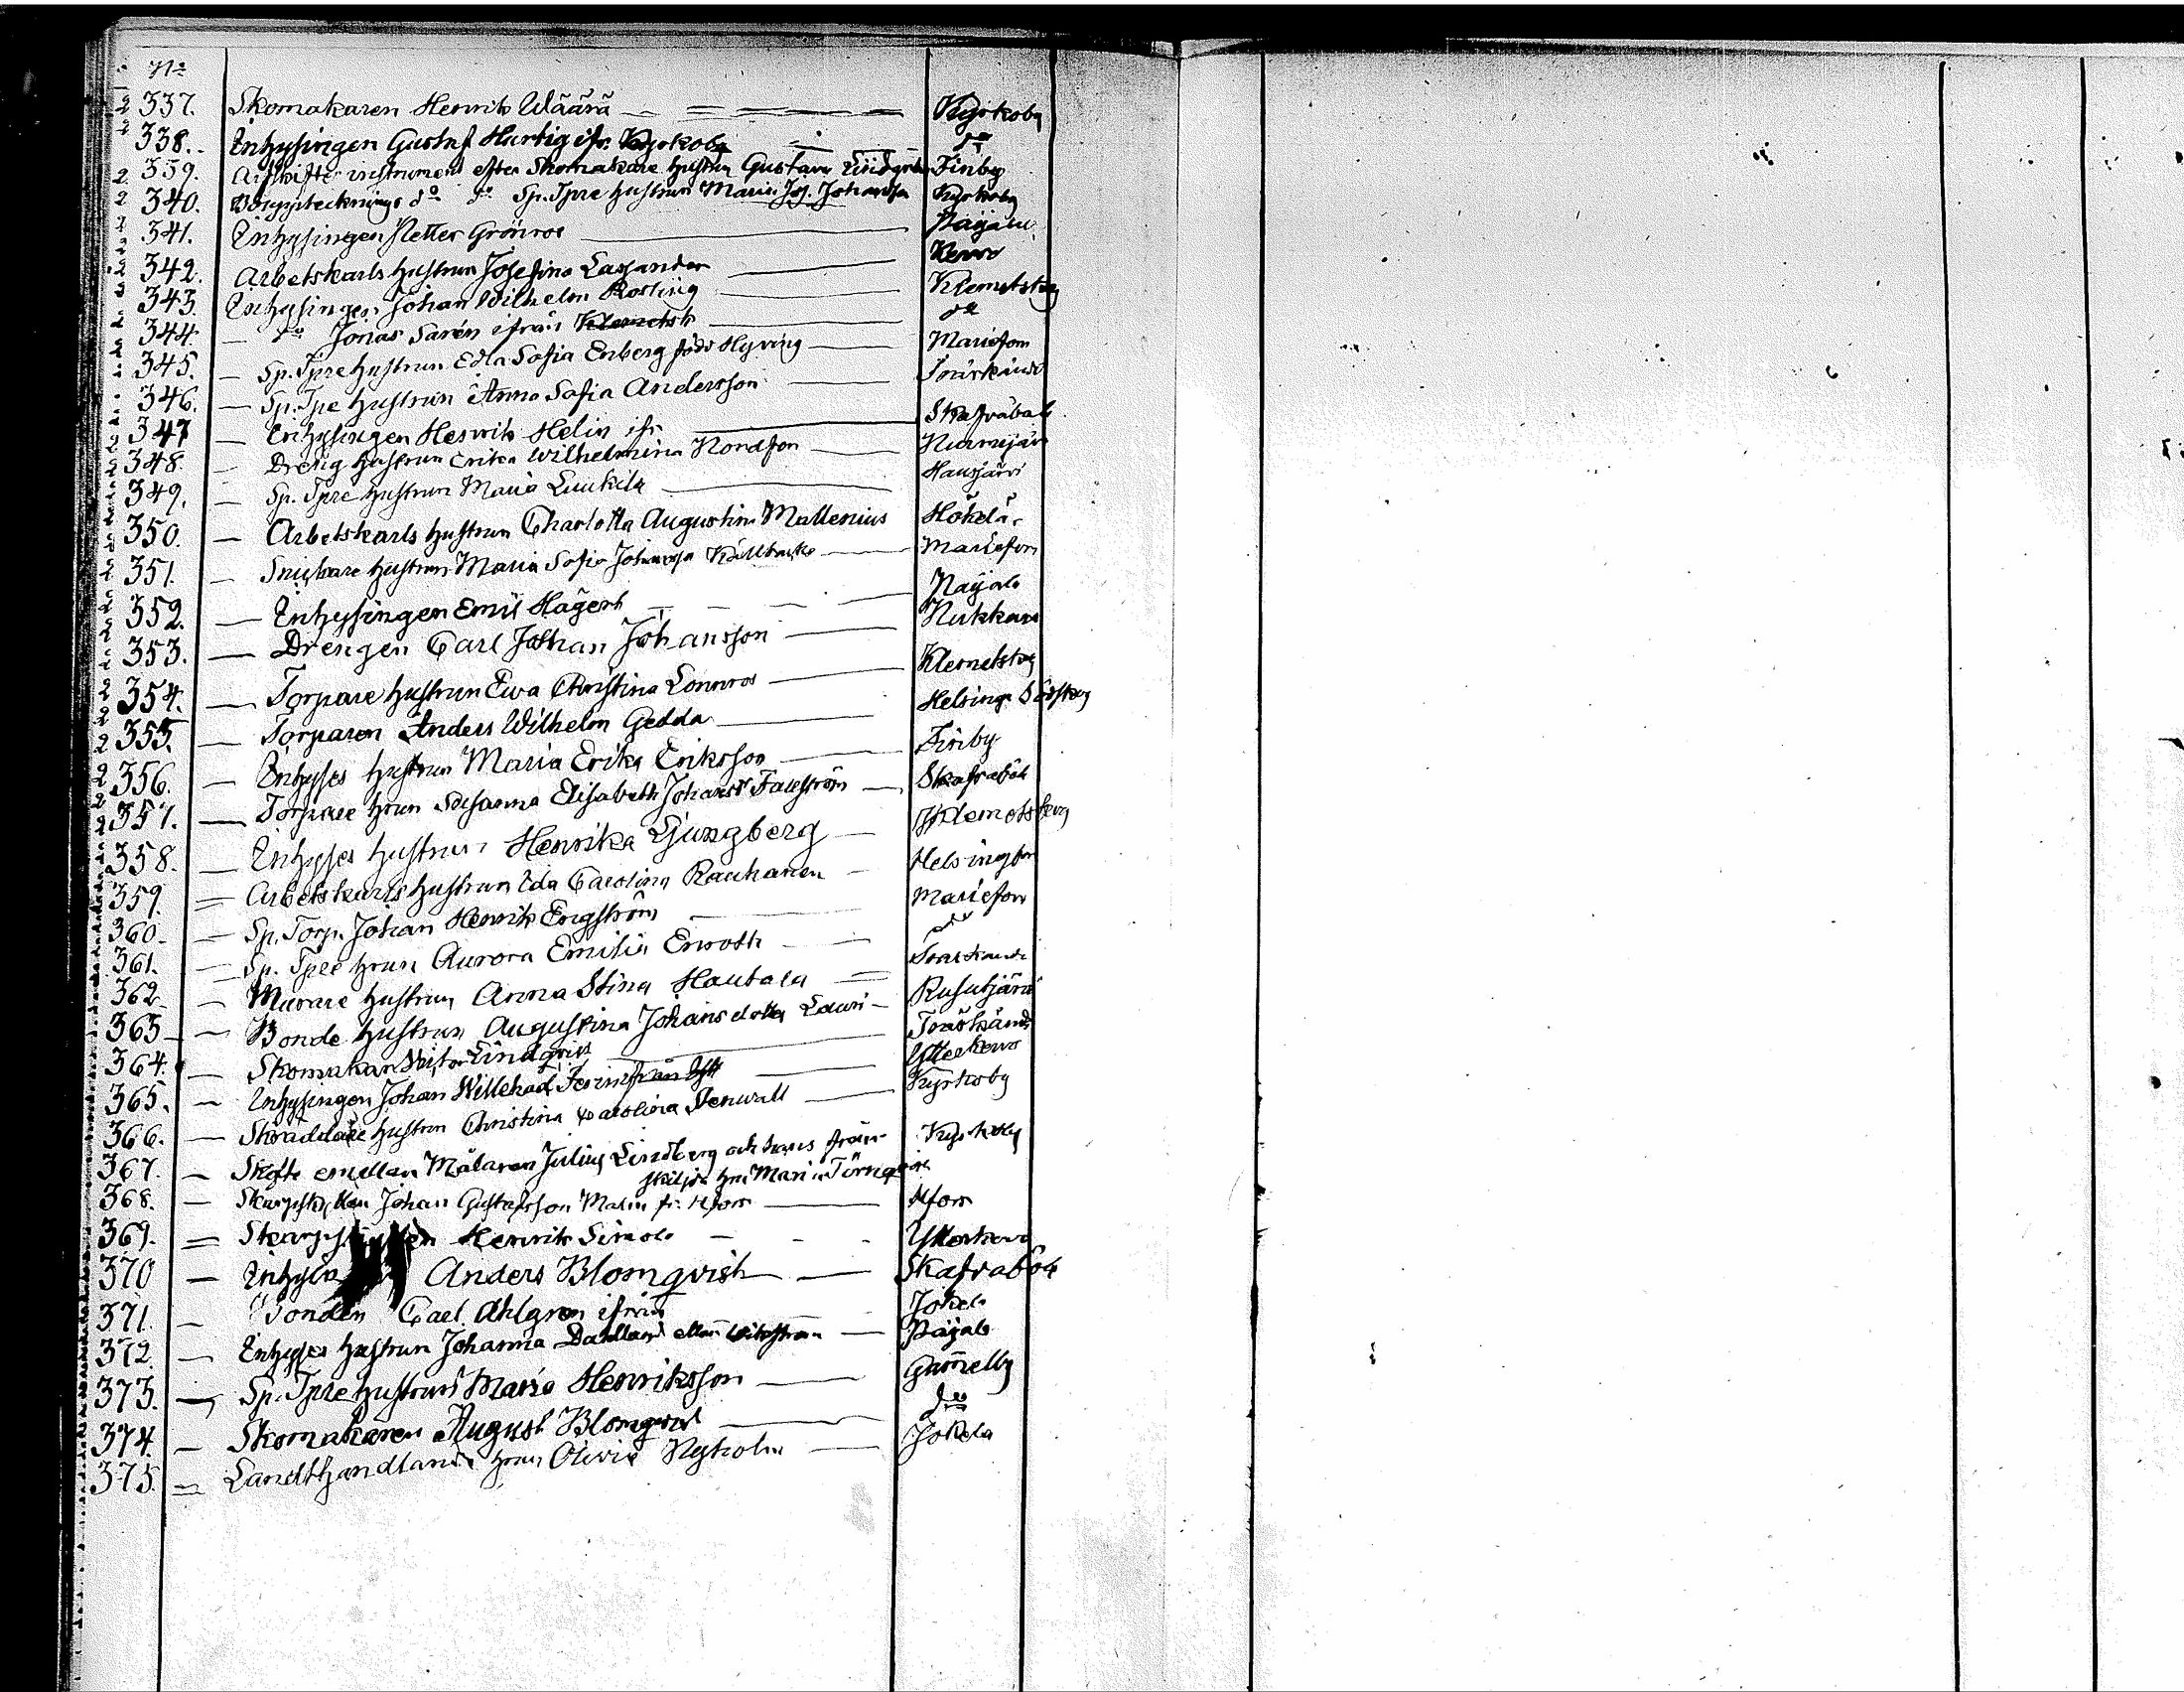 No
337. Skomakaren Henrik Wäärä — Kyrkoby
338. Inhysingen Gustaf Hartig ifr. Kyrkoby — do
339. Arfskifte instrument efter Skomakare hustrun Gustava Lindgren Finby
340. Bouppteknings do do Sp. Tpre hustrun Maria Jos. Johansson Kyrkoby
341. Inhysingen Petter Grönroos — Paijala
342. Arbetskarls hustrun Josefina Lassander — Kervo
343. Inhysingen Johan Wilhelm Rosting — Klemetskog
344. — do Jonas Sarén ifrån Klemetsk — do
345. — Sp. Tpre hustrun Edla Sofia Enberg född Hyving — Mariefors
346. — Sp. Tpe hustrun Anna Sofia Andersson — Träskända
347 — Inhysingen Henrik Helin ifr — Skafraback
348. — Dreng hustrun Erika Wilhelmina Nordfors — Nurmijärvi
349. — Sp. Tpre hustrun Maria Luukila — Hausjärvi
350. — Arbetskarls hustrun Charlotta Augustina Mallenius
351. — Snickare hustrun Maria Sofia Johansson Källbacka — Mariefors
352. — Inhysingen Emil Hägert — Paijala
353. — Drengen Carl Johan Johansson — Nukkars
354. — Torpare hustrun Ewa Christina Lönnros — Klemetskog
355. — Torparen Anders Wilhelm Gedda — Helsinge
356. — Inhyses hustrun Maria Erika Eriksson — Finby
357. — Torpare hrun Susanna Elisabeth Johansd Fallström — Skafraback
358. — Inhyses hustrun Henrika Ljungberg — Klemetskog
359. = Arbetskarls hustrun Ida Carolina Rauhanen — Helsingfors
360. — Sp. Torp. Johan Henrik Engström — Mariefors
361. — Sp. Tpre hrun Aurora Emilia Enroth — do
362 — Murare hustrun Anna Stina Hautala = Träskända
363 — Bonde hustrun Augustina Johansdotter Lauri — Rusutjärvi
364. — Skomakar Viktor Lindqvist — Träskända
365. — Inhysingen Johan Willehad — Ytterkervo
366. — Skräddare hustrun Christina Carolina Stenwall — Kyrkoby
367. — Skifte emellan Målaren Julius Lindberg och hans från- Kyrkoby
skiljda hru Maria Törnqvist
368. — Skarpskytten Johan Gustafsson Malm fr. Hfors — Hfors
369. = Skarpskytten Henrik Simola — Ytterkervo
370 — Anders Blomqvist — Skafraback
371. — Bonden Carl Ahlgren ifrån Jokela
372. — Inhyses hustrun Johanna — Paijala
373. — Sp. Tpre hustrun Maria Henriksson — Gammelby
374. — Skomakaren August Blomqvist — do
375. = Landthandlande hrun Olivia Nyholm — Jokela